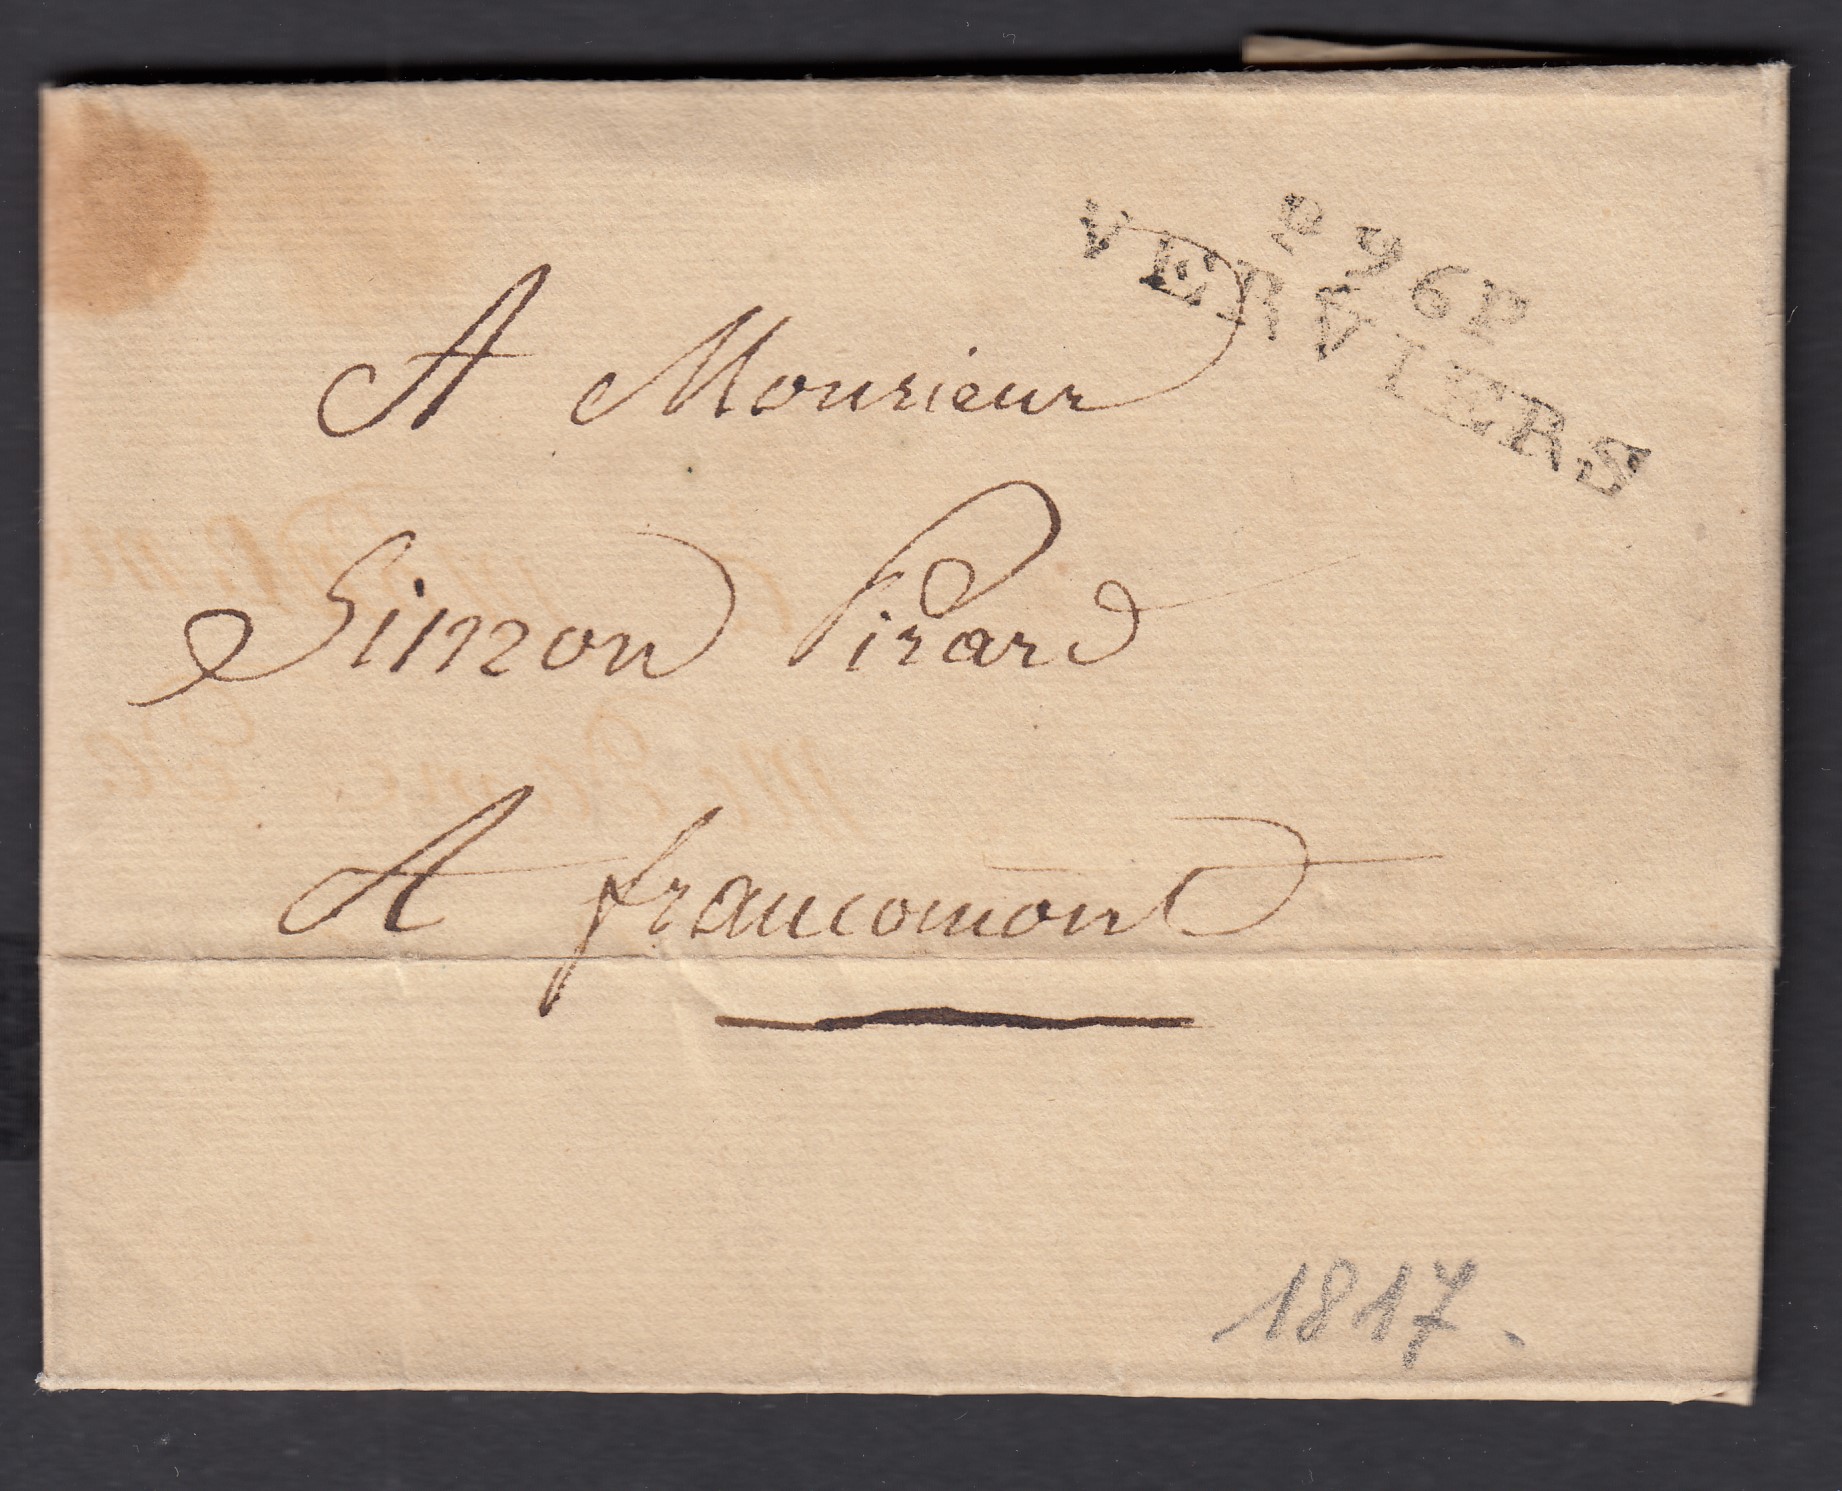 P96P
VERVIERS
A Monsieur
Simon Pirard
A francomont
1817.